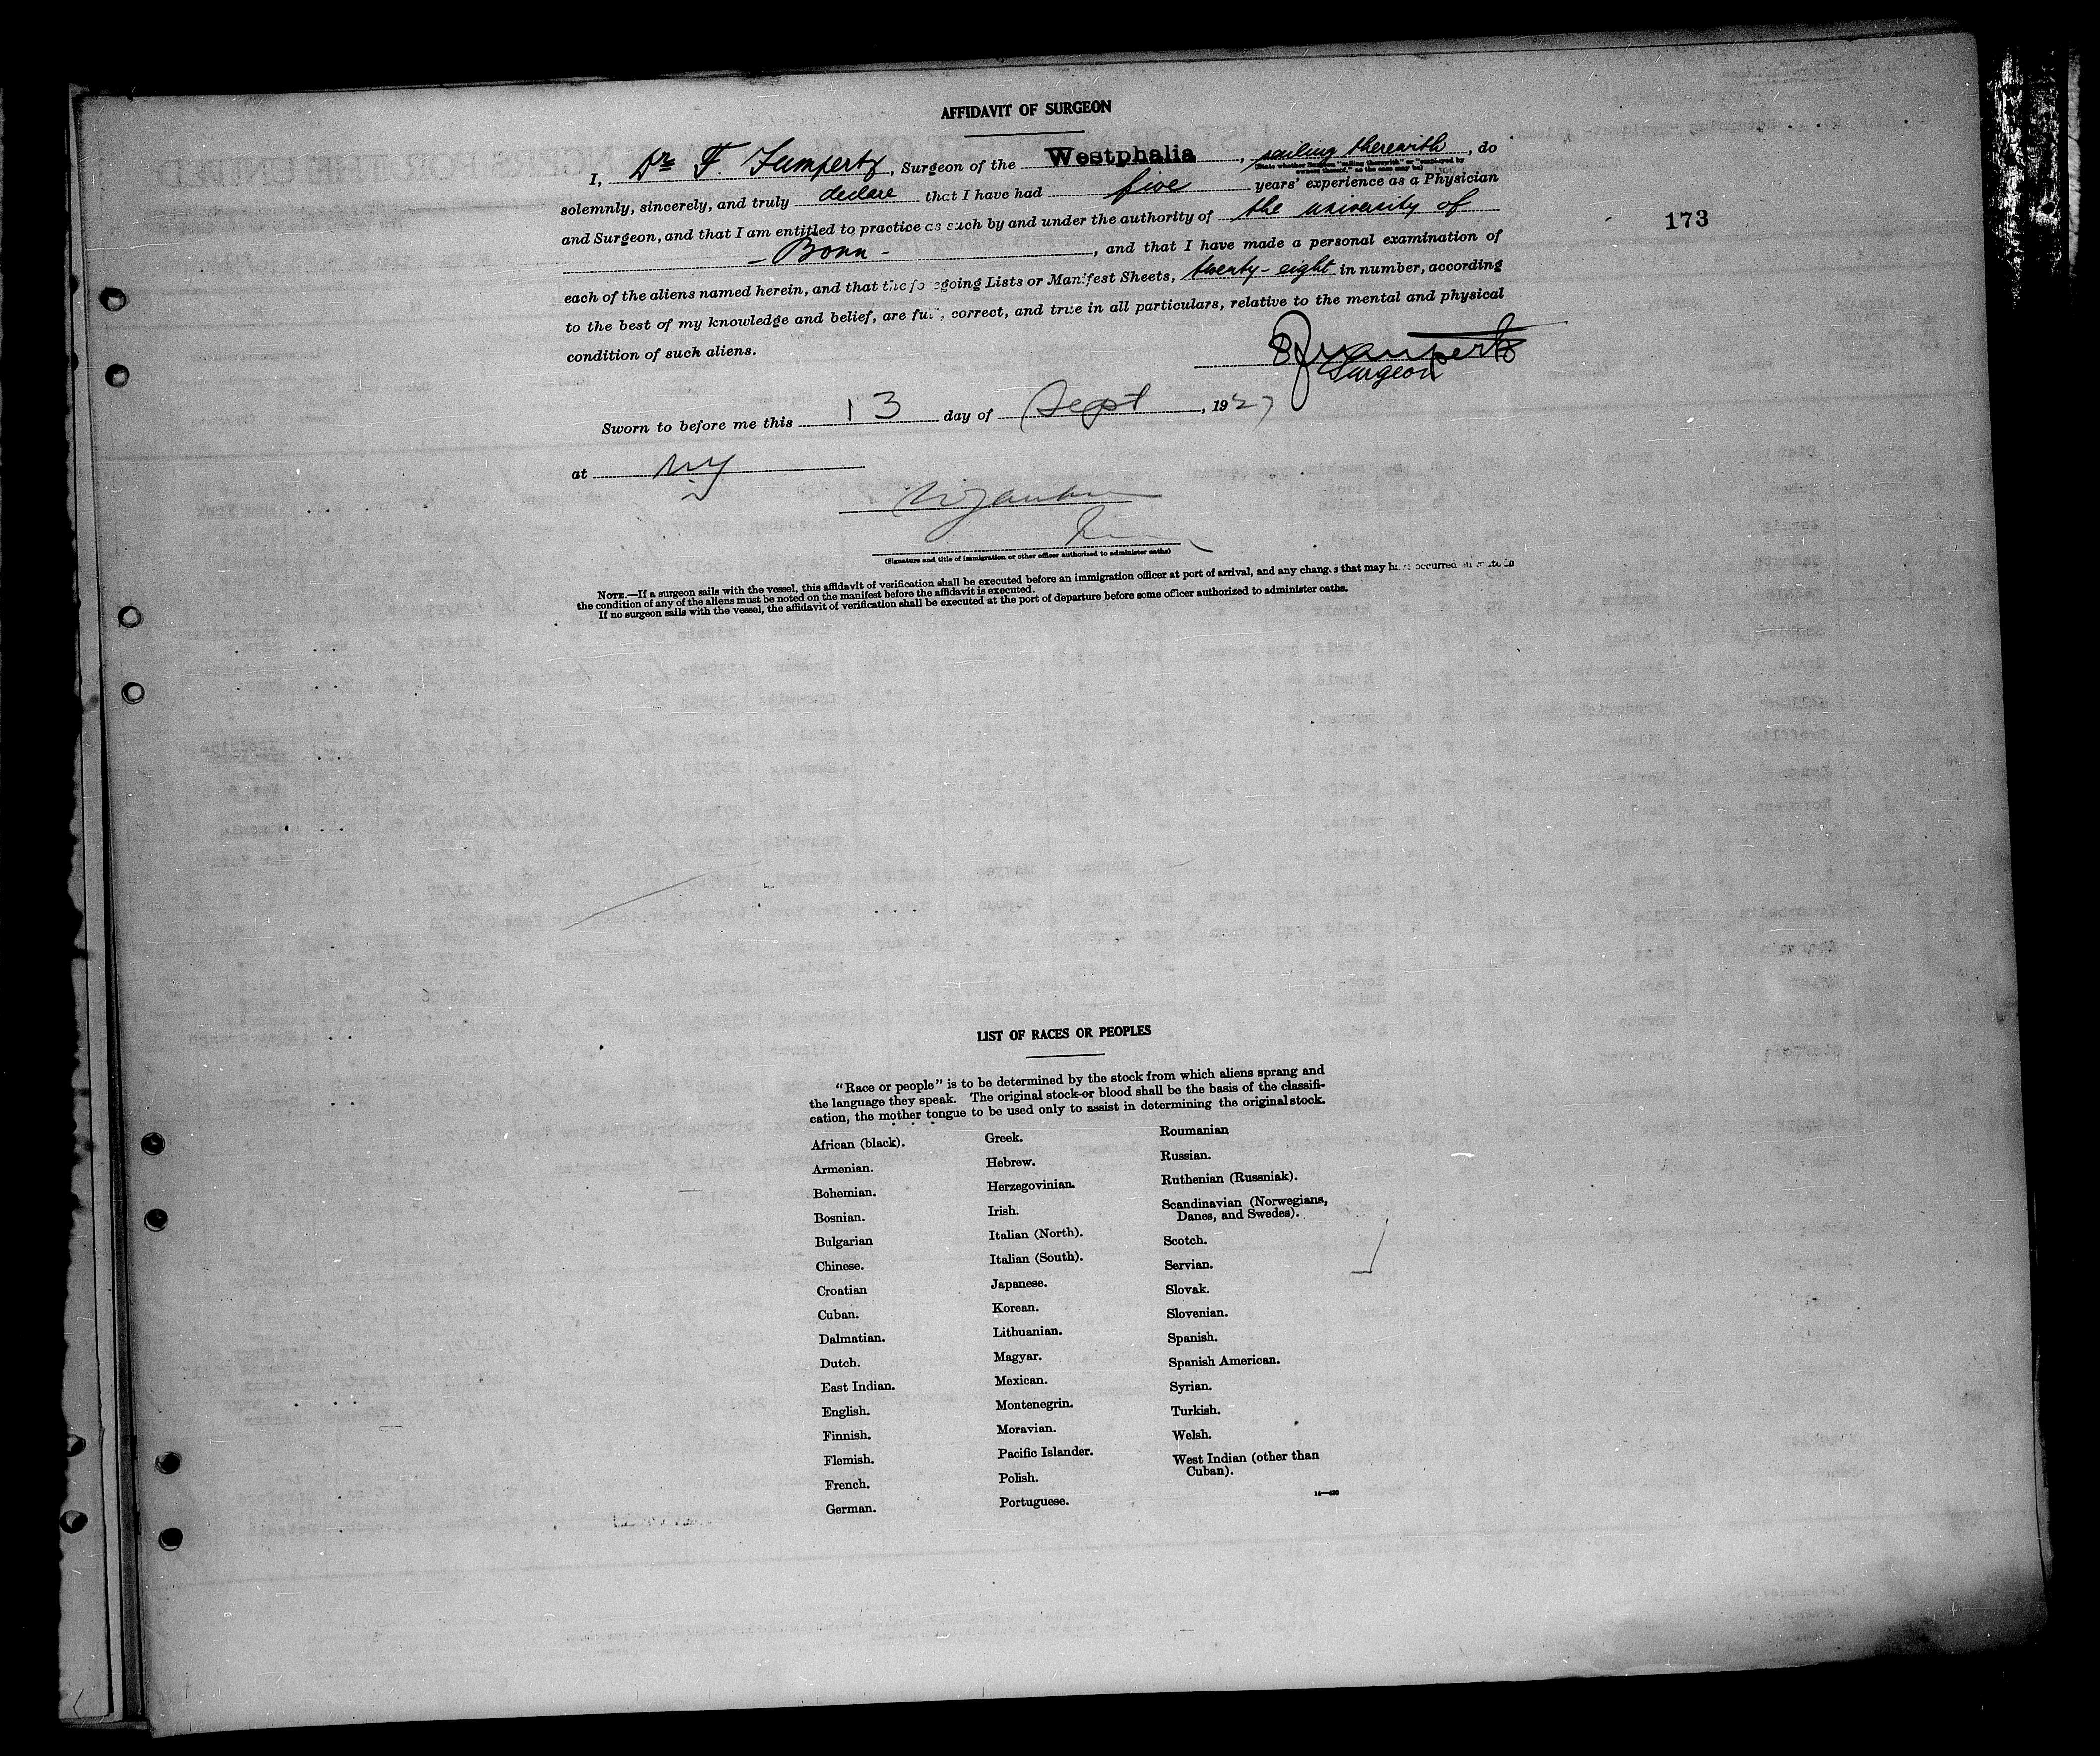 AFFIDAVIT OF SURGEON
I, Dr F. , Surgeon of the Westphalia, sailing therewith, do
(State whether Surgeon "sailing therewith" or "employed by
owners thereof," as the case may be)
solemnly, sincerely, and truly declare that I have had five years' experience as a Physician
and Surgeon, and that I am entitled to practice as such by and under the authority of the university of
- Bonn - , and that I have made a personal examination of
173
each of the aliens named herein, and that the foregoing Lists or Manifest Sheets, twenty-eight in number, according
to the best of my knowledge and belief, are full, correct, and true in all particulars, relative to the mental and physical
condition of such aliens.
Surgeon
Sworn to before me this 13 day of Sept, 1927
at NY
(Signature and title of immigration or other officer authorized to administer oaths)
NOTE.—If a surgeon sails with the vessel, this affidavit of verification shall be executed before an immigration officer at port of arrival, and any changes that may have occurred en route in
the condition of any of the aliens must be noted on the manifest before the affidavit is executed.
If no surgeon sails with the vessel, the affidavit of verification shall be executed at the port of departure before some officer authorized to administer oaths.
LIST OF RACES OR PEOPLES
"Race or people" is to be determined by the stock from which aliens sprang and
the language they speak. The original stock or blood shall be the basis of the classifi-
cation, the mother tongue to be used only to assist in determining the original stock.
African (black).
Armenian.
Bohemian.
Bosnian.
Bulgarian
Chinese.
Croatian
Cuban.
Dalmatian.
Dutch.
East Indian.
English.
Finnish.
Flemish.
French.
German.
Greek.
Hebrew.
Herzegovinian.
Irish.
Italian (North).
Italian (South).
Japanese.
Korean.
Lithuanian.
Magyar.
Mexican.
Montenegrin.
Moravian.
Pacific Islander.
Polish.
Portuguese.
Roumanian
Russian.
Ruthenian (Russniak).
Scandinavian (Norwegians,
Danes, and Swedes).
Scotch.
Servian.
Slovak.
Slovenian.
Spanish.
Spanish American.
Syrian.
Turkish.
Welsh.
West Indian (other than
Cuban).
14—430